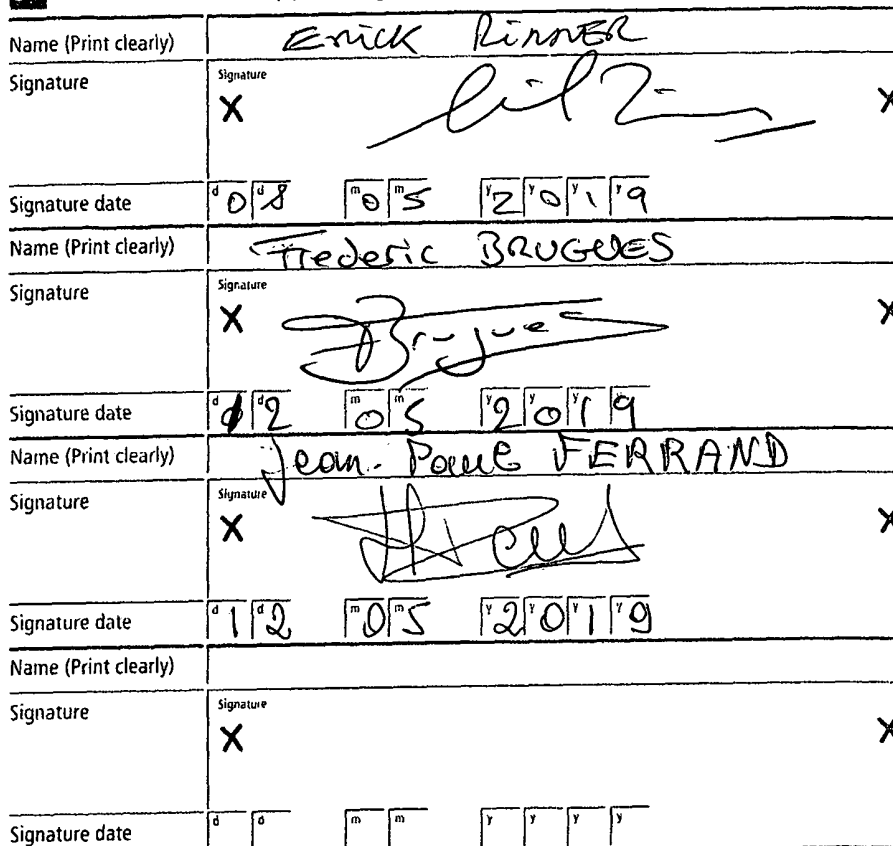 Name (Print clearly) Erick RINNER
Signature Signature X X
Signature date d 0 d 8 m 0 m 5 y 2 y 0 y 1 y 9
Name (Print clearly) Frederic BRUGUES
Signature Signature X Brugues X
Signature date d 1 d 2 m 0 m 5 y 2 y 0 y 1 y 9
Name (Print clearly) Jean-Paul FERRAND
Signature Signature X X
Signature date d 1 d 2 m 0 m 5 y 2 y 0 y 1 y 9
Name (Print clearly)
Signature Signature X X
Signature date d d m m y y y y